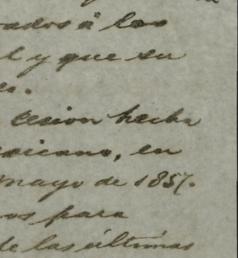 vados á los
l y que su
cesion hecha
xicano, en
mayo de 1857.
os para
de las últimas